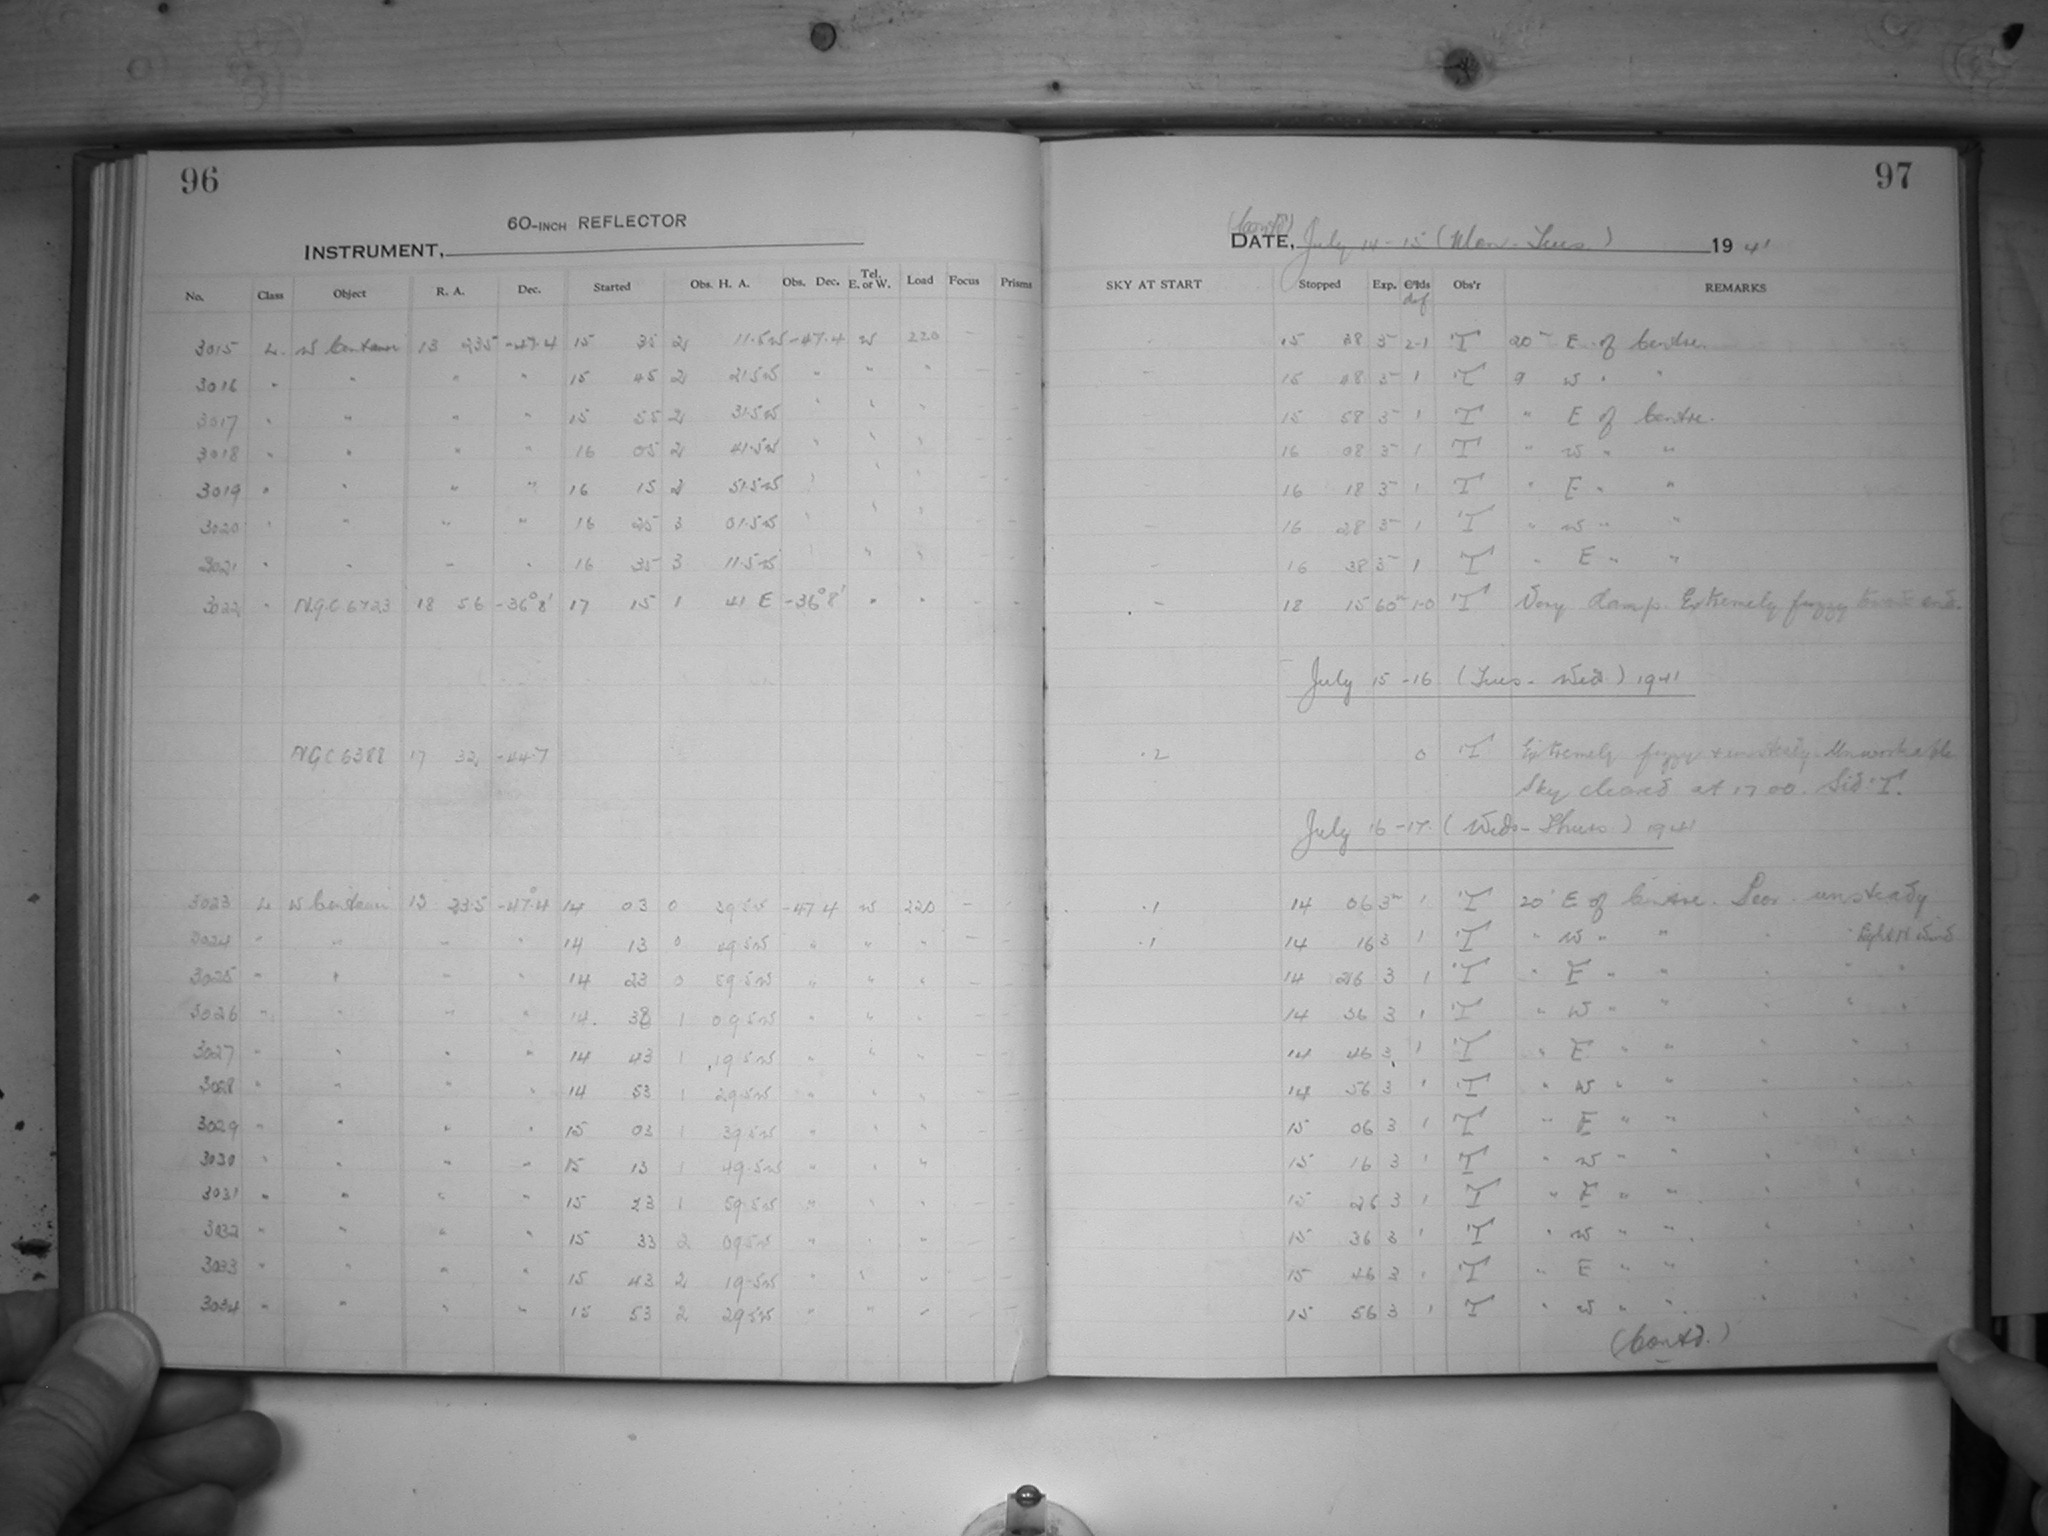 96
97
60-INCH REFLECTOR
INSTRUMENT,
(Cont'd)
DATE, July 14-15 (Mon-Tues.) 1941
No. Class Object R. A. Dec. Started Obs. H. A. Obs. Dec. Tel. E. or W. Load Focus Prisms SKY AT START Stopped Exp. C'lds Obs'r REMARKS
3015 L. w Centauri 13 23.5 -47.4 15 35 2 11.5W -47.4 W 220 - - 15 38 3m 2-1 T 20m E of Centre.
3016 " " " " 15 45 2 21.5W " " " - - - 15 48 3m 1 T 9 W " "
3017 " " " " 15 55 2 31.5W " " " - - - 15 58 3m 1 T " E of Centre.
3018 " " " " 16 05 2 41.5W " " " - - - 16 08 3m 1 T " W " "
3019 " " " " 16 15 2 51.5W " " " - - - 16 18 3m 1 T " E " "
3020 " " " " 16 25 3 01.5W " " " - - - 16 28 3m 1 T " W " "
3021 " " " " 16 35 3 11.5W " " " - - - 16 38 3m 1 T " E " "
3022 " N.G.C 6723 18 56 -36°8' 17 15 1 41 E -36°8' " " - - - 18 15 60m 1-0 T Very damp. Extremely fuzzy end.
July 15-16 (Tues-Wed) 1941
NGC 6388 17 32 -44.7 .2 0 T Extremely fuzzy + unsteady. Unworkable
Sky cleared at 17 00. Sid. T.
July 16-17 (Weds-Thurs) 1941
3023 L w Centauri 13 23.5 -47°.4 14 03 0 39.5W -47 4 W 220 - - .1 14 06 3m 1 T 20' E of Centre. Poor. unsteady
3024 " " " " 14 13 0 49.5W " " " - - .1 14 16 3 1 T " W " " " Light N Wind
3025 " " " " 14 23 0 59.5W " " " - - 14 26 3 1 T " E " " " " "
3026 " " " " 14 33 1 09.5W " " " - - 14 36 3 1 T " W " " " " "
3027 " " " " 14 43 1 19.5W " " " - - 14 46 3 1 T " E " " " " "
3028 " " " " 14 53 1 29.5W " " " - - 14 56 3 1 T " W " " " " "
3029 " " " " 15 03 1 39.5W " " " - - 15 06 3 1 T " E " " " " "
3030 " " " " 15 13 1 49.5W " " " - - 15 16 3 1 T " W " " " " "
3031 " " " " 15 23 1 59.5W " " " - - 15 26 3 1 T " E " " " " "
3032 " " " " 15 33 2 09.5W " " " - - 15 36 3 1 T " W " " " " "
3033 " " " " 15 43 2 19.5W " " " - - 15 46 3 1 T " E " " " " "
3034 " " " " 15 53 2 29.5W " " " - - 15 56 3 1 T " W " " " " "
(Contd.)